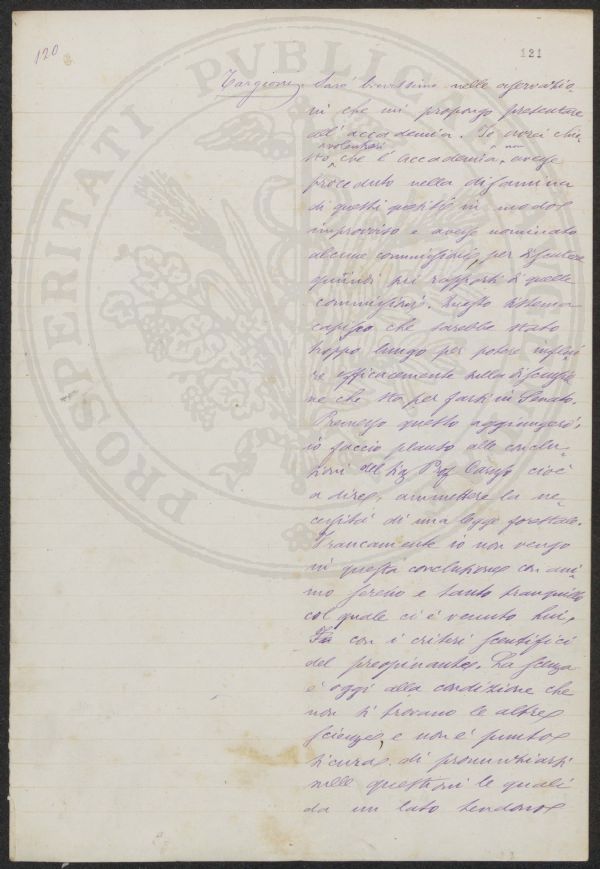 120
121
Targioni. Sarò brevissimo nelle osservazio
ni che mi propongo presentare
all'accademia. Io avrei chie
volentieri
sto che l'Accademia, non avesse
proceduto nella disamina
di questi quesiti in modo
improvviso e avesse nominato
alcune commissioni, per discutere
quindi sui rapporti di quelle
commissioni. Questo sistema
capisco che sarebbe stato
troppo lungo per potere influi
re efficacemente sulla discussio
ne che sta per farsi in Senato.
Premesso questo aggiungerò,
io faccio plauso alle conclu
sioni del Sig. Prof Caruso cioè
a dire, ammettere la ne
cessità di una legge forestale.
Francamente io non vengo
in questa conclusione con ani
mo sereno e tanto tranquillo
col quale ci è venuto lui,
con i criteri scentifici
del preopinante. La scenza
è oggi alla condizione che
non si trovano le altre
scienze, e non è punto
sicura di pronunziarsi
nelle questioni le quali
da un lato tendono
PROSPERITATI PVBLICAE